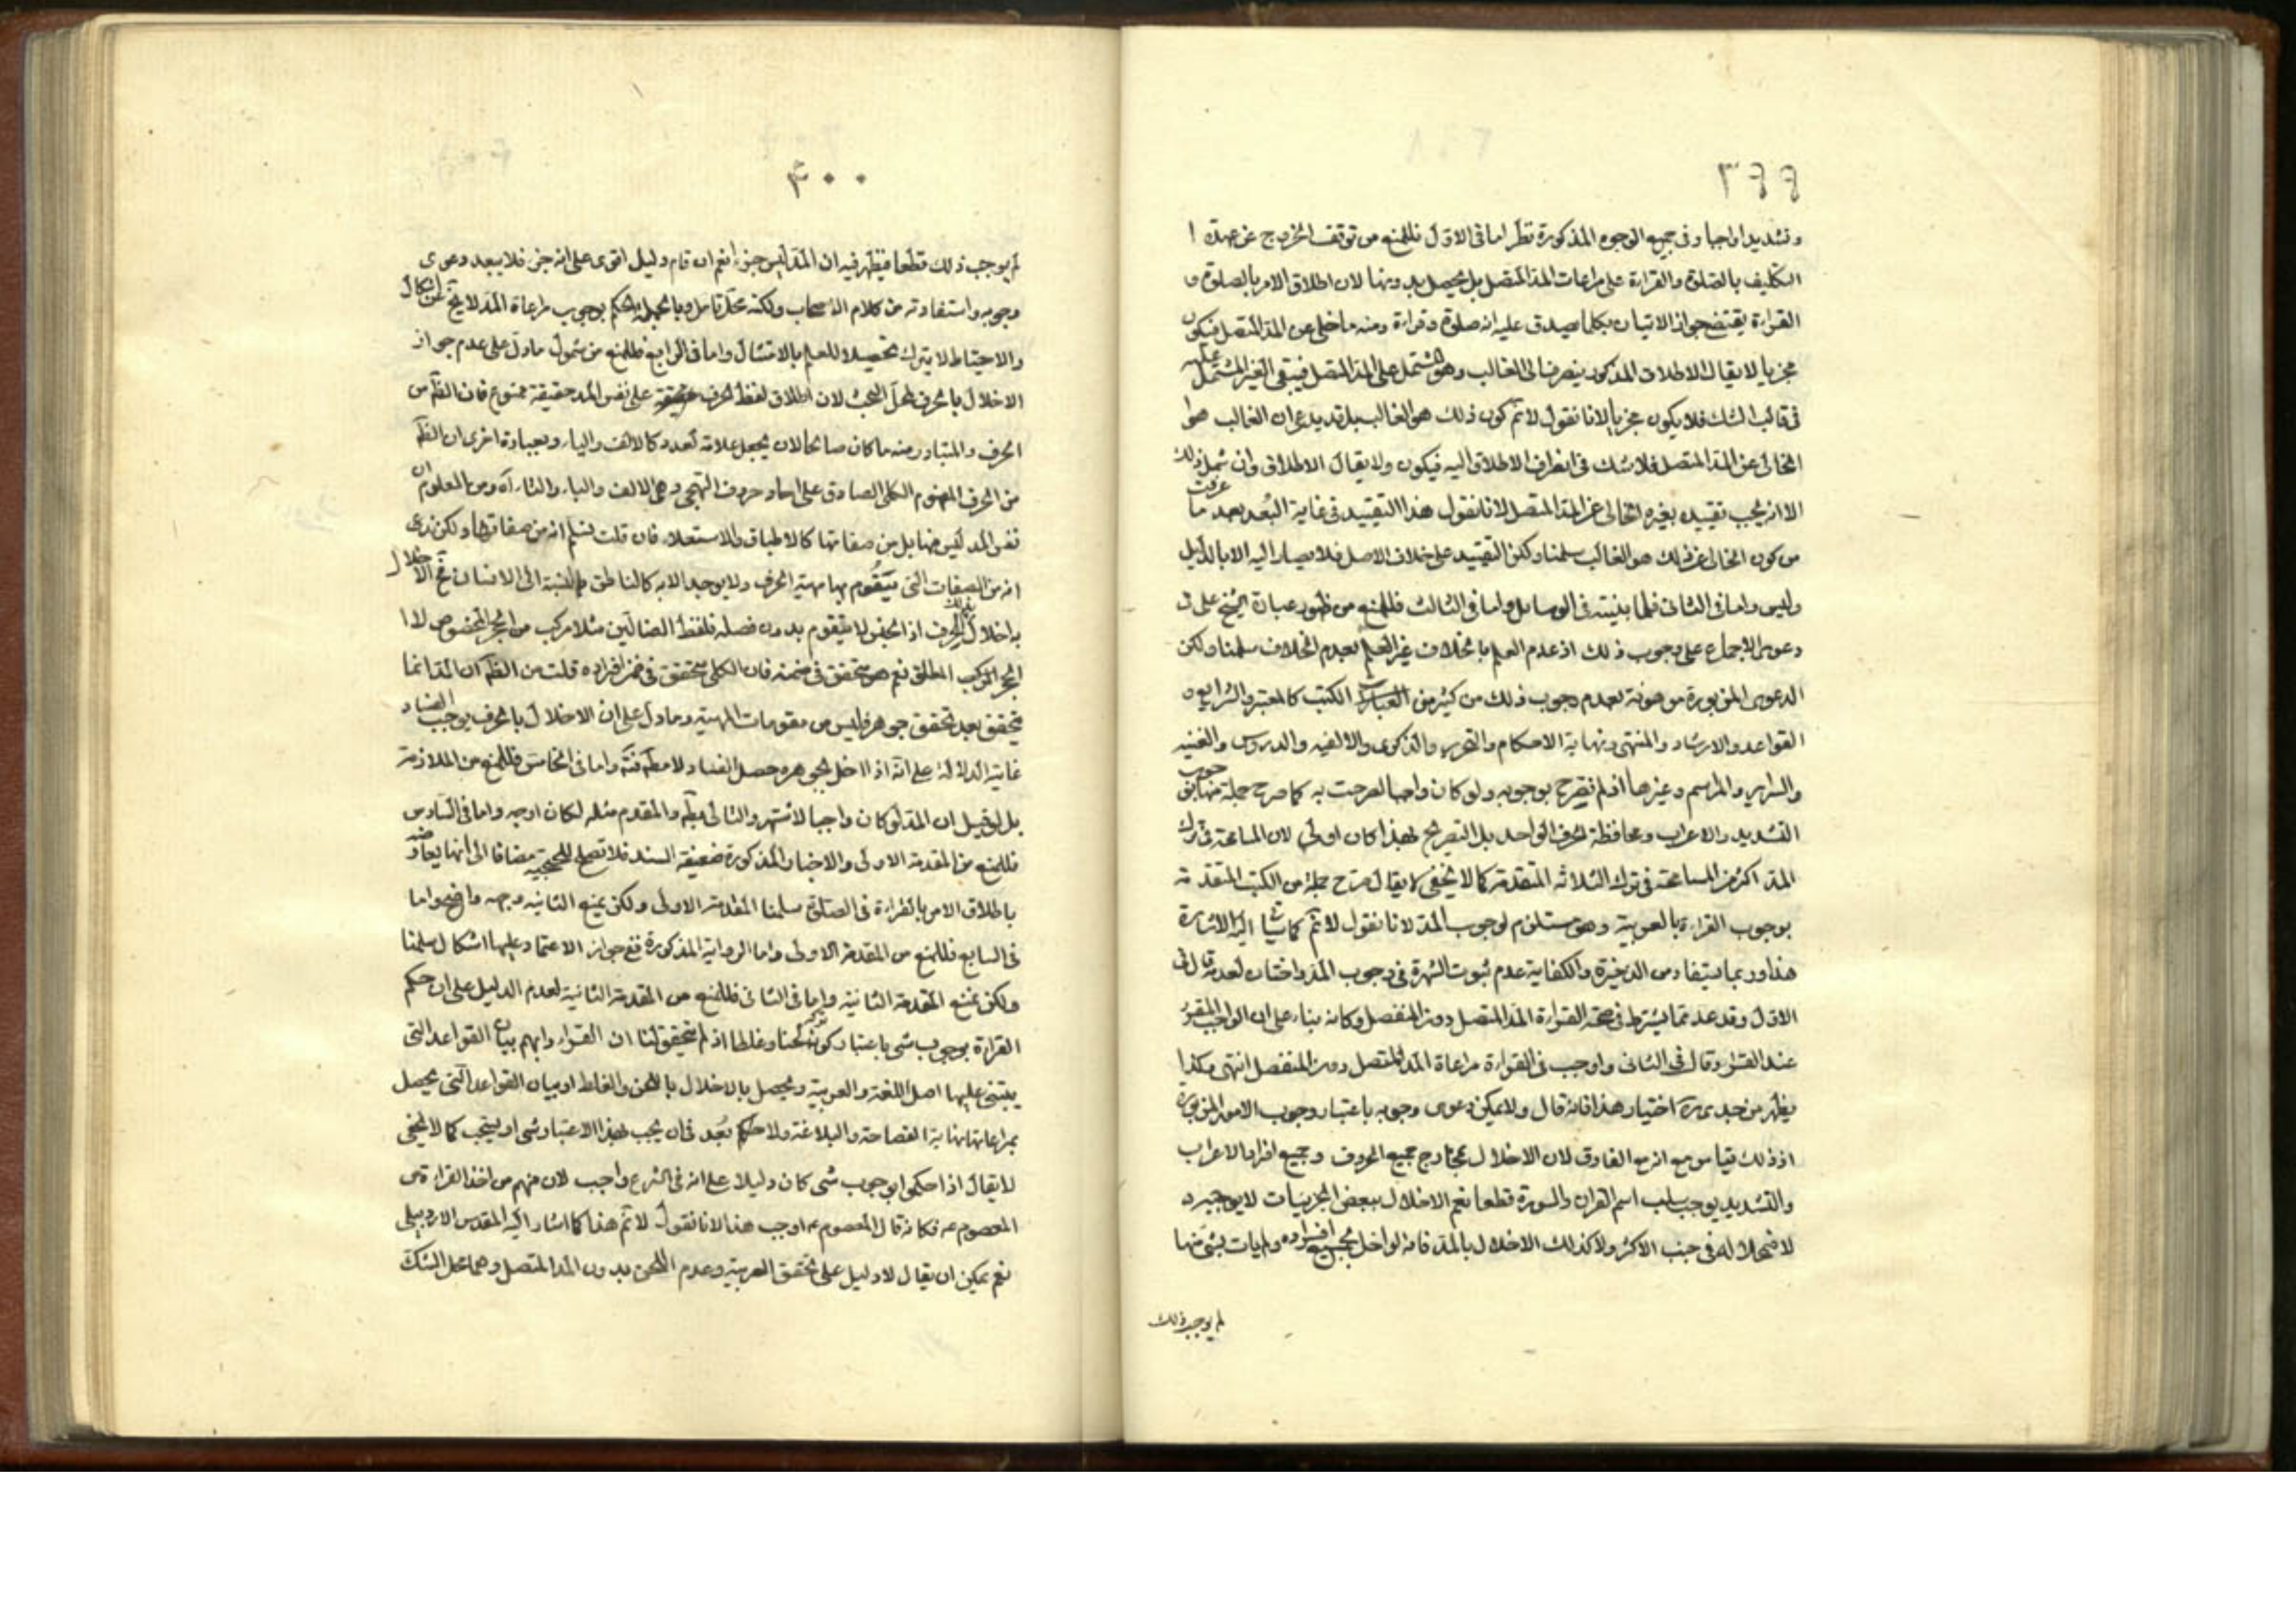 ٣٩٩
وتشديدا واجبا وفي جميع الوجوه المذكورة نظر اما في الاول فللمنع من توقف الخروج عن عهدة ا
التكليف بالصلوة والقراءة على مراعات المد المتصل بل يحصل بدونها لان اطلاق الامر بالصلوة و
القراءة يقتضي جواز الاتيان بكلما يصدق عليه انه صلوة وقراءة ومنه ما خلى عن المد المتصل فيكون
مجزيا لا يقال الاطلاق المذكور ينصرف الى الغالب وهو المشتمل على المد المتصل فيبقى الغير المشتمل عليه
في قالب الشك فلا يكون مجزيا لانا نقول لا نم كون ذلك هو الغالب بل قد يدعى ان الغالب هو ا
الخالى عن المد المتصل فلا شك في انصراف الاطلاق اليه فيكون ولا يقال الاطلاق وان شمل ذلك
الا انه يجب تقييده بغيره الخالى عن المد المتصل لانا نقول هذا التقييد في غاية البعد بعد ما عرفت
من كون الخالى عن ذلك هو الغالب سلمنا ولكن التقييد على خلاف الاصل فلا يصار اليه الا بالدليل
وليس واما في الثاني فلما بينته في الوسايل واما في الثالث فللمنع من ظهور عبارة الشيخ على في
دعوى الاجماع على وجوب ذلك اذ عدم العلم بالخلاف غير العلم بعدم الخلاف سلمنا ولكن
الدعوى المزبورة موهونة بعدم وجوب ذلك من كثير من الكتب كالمعتبر والشرايع و
القواعد والارشاد والمنتهى ونهاية الاحكام والتحرير والذكرى والالفيه والدروس والغنيه
والسراير والمراسم وغيرها اذ لم تصرح بوجوبه ولو كان واجبا لصرحت به كما صرح جملة منها بوجوب
التشديد والاعراب ومحافظة الحرف الواحد بل التصريح بهذا كان اولى لان المسامحة في ترك
المد اكثر من المسامحة في ترك الثلاثة المتقدمة كما لا يخفى لا يقال صرح جملة من الكتب المتقدمة
بوجوب القراءة بالعربية وهو مستلزم لوجوب المد لانا نقول لا نم كما سيأتى اليه الاشارة
هذا وربما يستفاد من الذخيرة والكفاية عدم ثبوت الشهرة في وجوب المد واختاره لعدمه قال في
الاول وقد عد مما يشترط في صحة القراءة المد المتصل دون المنفصل وكانه بناء على ان الواجب المقرر
عند القراء وقال في الثاني واوجب في القراءة مراعاة المد المتصل دون المنفصل انتهى وكذا
يظهر من جدى ره اختيار هذا فانه قال ولا يمكن دعوى وجوبه باعتبار وجوب الامور المزبورة
اذ ذلك قياس مع انه مع الفارق لان الاخلال بمخارج جميع الحروف وجميع افراد الاعراب
والتشديد يوجب سلب اسم القران والسورة قطعا نعم الاخلال ببعض الجزئيات لا يوجبه
لاضمحلاله في جنب الاكثر ولا كذلك الاخلال بالمد فانه لو اخل بجميع افراده ولم يات بشئ منها
لم يوجب ذلك
٤٠٠
لم يوجب ذلك قطعا فيظهر فيه ان المد ليس جزءا نعم ان قام دليل اقوى على انه جزء فلا يبعد دعوى
وجوبه واستفادته من كلام الاصحاب ولكنه محل تامل وبالجملة الحكم بوجوب مراعاة المد لا يخ عن اشكال
والاحتياط لا يترك تحصيلا للعلم بالامتثال واما في الرابع فللمنع من شمول ما دل على عدم جواز
الاخلال بالحرف لمحل البحث لان اطلاق لفظ الحرف على نفس المد حقيقة ممنوع فان الظاهر من
الحرف والمتبادر منه ما كان صالحا لان يجعل علامة لعدد كالالف والياء وبعبارة اخرى ان الظاهر
من الحرف المفهوم الكلى الصادق على احاد حروف التهجى وهى الالف والباء والتاء آه ومن المعلوم ان
نفس المد ليس منها بل من صفاتها كالاطباق والاستعلاء فان قلت نسلم انه من صفاتها ولكن ندعى
انه من الصفات التى يتقوم بها مهية الحرف ولا يوجد الا به كالناطق بالنسبة الى الانسان فح الاخلال
به اخلال بالحرف اذ الجنس لا يتقوم بدون فصله فلفظ الضالين مثلا مركب من الجزء المخصوص لا ا
لجزء المركب المطلق نعم هو متحقق في ضمنه فان الكلى متحقق في ضمن افراده قلت من الظاهر ان المد انما
يتحقق بعد تحقق جوهر فليس من مقومات المهية وما دل على ان الاخلال بالحرف يوجب الفساد
غايته الدلالة على انه اذا اخل بجوهره حصل الفساد لا مطلقا واما في الخامس فللمنع من الملازمة
بل لو قيل ان المد لو كان واجبا لاشتهر والتالى بط والمقدم مثله لكان اوجه واما في السادس
فللمنع من المقدمة الاولى والاخبار المذكورة ضعيفة السند فلا تصلح للحجية مضافا الى انها يعارضه
باطلاق الامر بالقراءة في الصلوة سلمنا المقدمة الاولى ولكن نمنع الثانيه وجهه واضح واما
في السابع فللمنع من المقدمة الاولى واما الرواية المذكورة ففي جواز الاعتماد عليها اشكال سلمنا
ولكن نمنع المقدمة الثانية واما في الثامن فللمنع من المقدمة الثانية لعدم الدليل على ان حكم
القراءة بوجوب شئ باعتبار كون تركه لحنا وغلطا اذ لم يتحقق لنا ان القراء دابهم بيان القواعد التى
يبتنى عليها اصل اللغة والعربية ويحصل بالاخلال بها اللحن والغلط او بيان القواعد التى يحصل
بمراعاتها نهاية الفصاحة والبلاغة ولا بعد في ان يجب بهذا الاعتبار شئ او يستحب كما لا يخفى
لا يقال اذا حكموا بوجوب شئ كان دليلا على انه في الشرع واجب لان منهم من اخذ القراءة من
المعصوم عه فكانه قال المعصوم عه اوجب هذا لانا نقول لا نم هذا كما اشار اليه المقدس الاردبيلى
نعم يمكن ان يقال لا دليل على تحقق العربية وعدم اللحن بدون المد المتصل وهما محل الشك